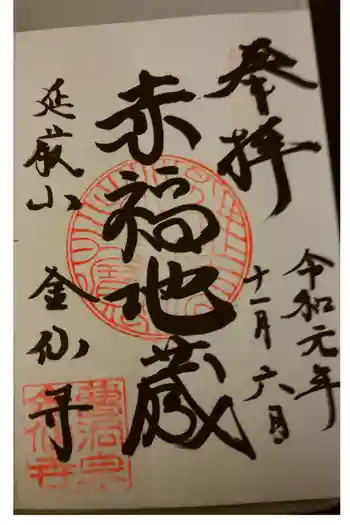 奉拝
令和元年
十一月六日
赤福地蔵
延嶽山
金仙寺
曹洞宗
金仙寺